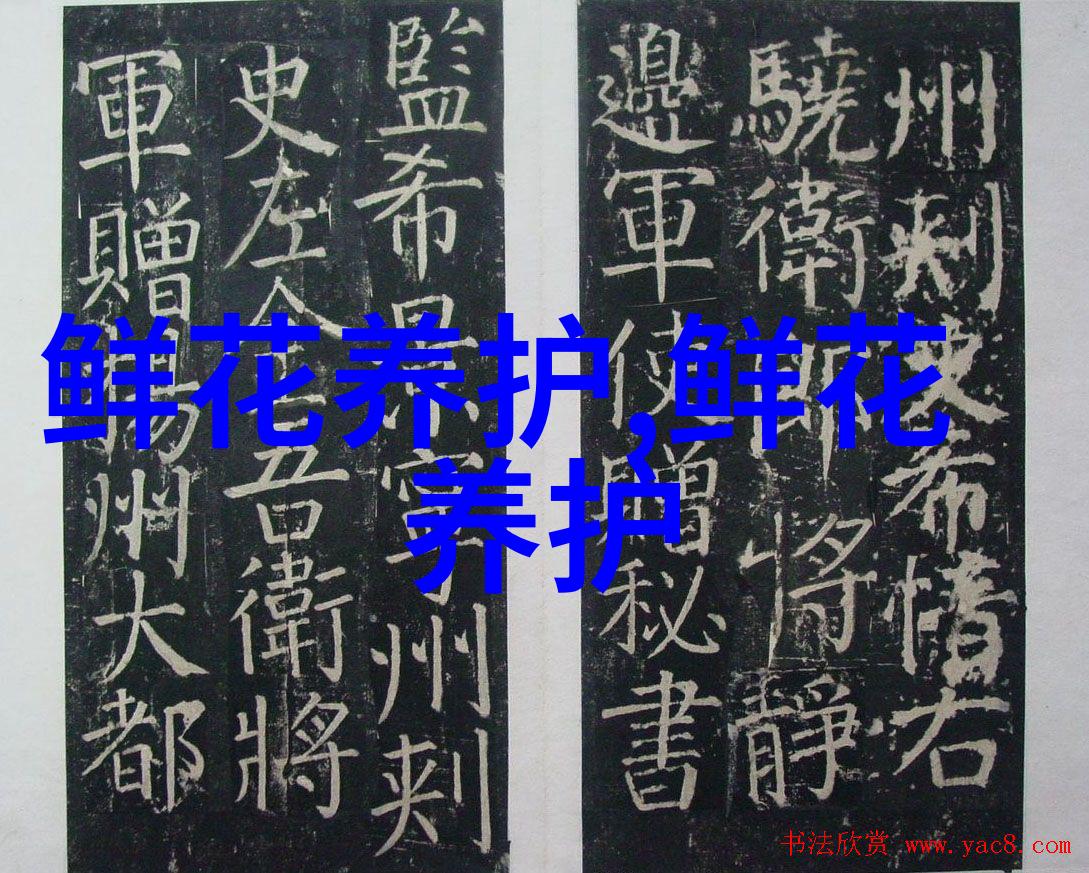 鲜花养护,鲜花
养护
州刺史希右
驍衛郎將靜
邊軍使贈秘書
監希景寧州刺
史左金吾衛將
軍贈揚州大都
书法欣赏 www.yac8.com